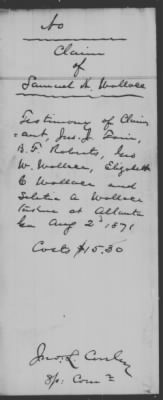 No
Claim
of
Samuel N. Wallace
Testimony of Claim
ant, Jno. J.
B. F. Roberts, Geo
W. Wallace, Elizabeth
C Wallace and
A Wallace
taken at Atlanta
Ga Aug 2d 1871
Costs $15.30
Jno. L. Conley
Sp: Comr